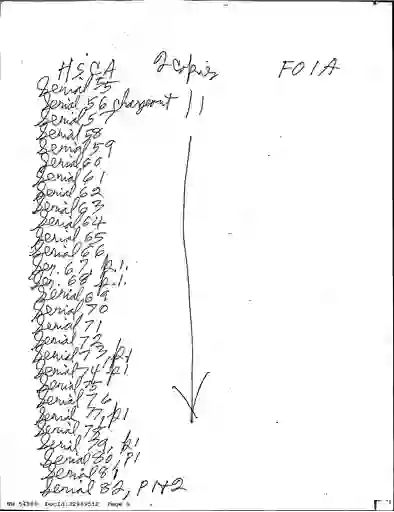 HSCA 2 copies FOIA
Serial 55
Serial 56 chargeout 11
Serial 57
Serial 58
Serial 59
Serial 60
Serial 61
Serial 62
Serial 63
Serial 64
Serial 65
Serial 66
Ser. 67, p.1.
Ser. 68, p.1.
Serial 69
Serial 70
Serial 71
Serial 72
Serial 73, p1
Serial 74, p1
Serial 75
Serial 76
Serial 77, p1
Serial 78
Serial 79, p1
Serial 80, P1
Serial 81
Serial 82, P1+2
Page 6